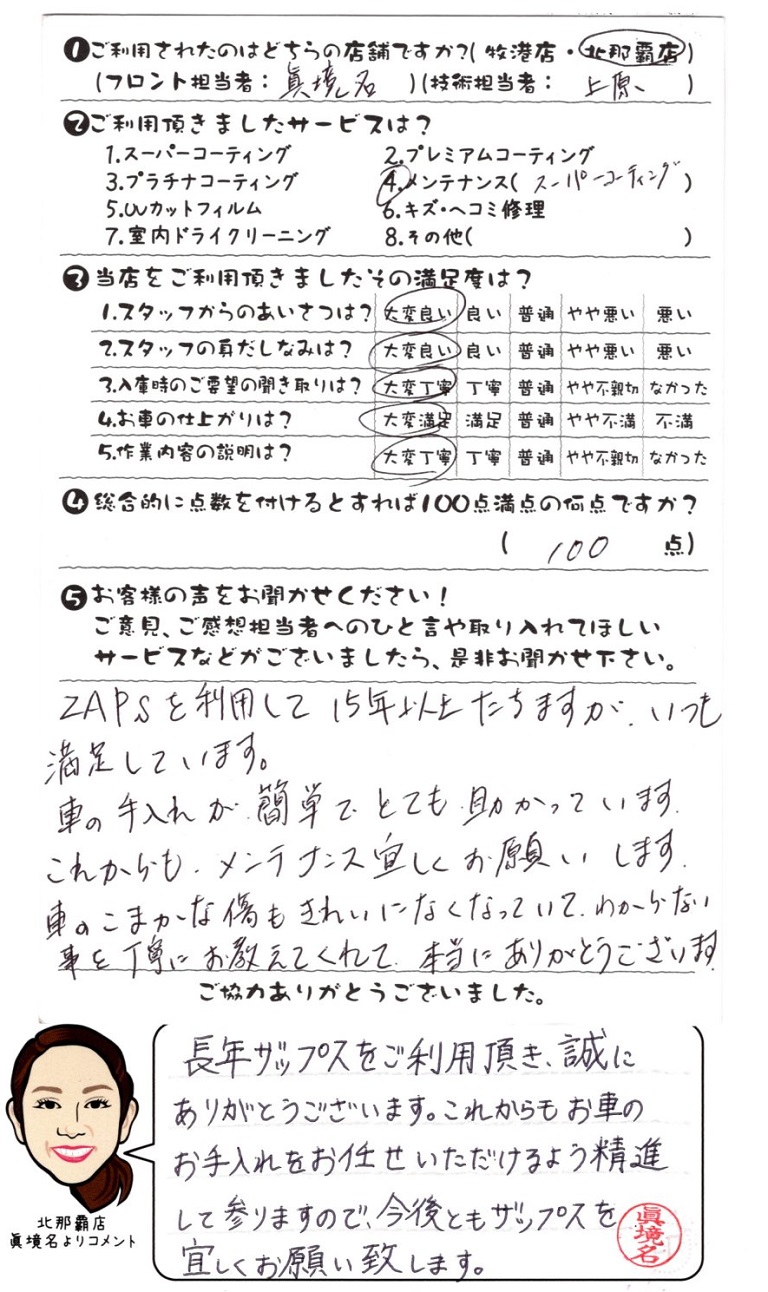 ❶ご利用されたのはどちらの店舗ですか?(牧港店・北那覇店)
(フロント担当者: 眞境名 )(技術担当者: 上原 )
❷ご利用頂きましたサービスは?
1.スーパーコーティング 2.プレミアムコーティング
3.プラチナコーティング 4.メンテナンス(スーパーコーティング)
5.UVカットフィルム 6.キズ・ヘコミ修理
7.室内ドライクリーニング 8.その他( )
❸当店をご利用頂きましたその満足度は?
1.スタッフからのあいさつは? 大変良い 良い 普通 やや悪い 悪い
2.スタッフの身だしなみは? 大変良い 良い 普通 やや悪い 悪い
3.入庫時のご要望の聞き取りは? 大変丁寧 丁寧 普通 やや不親切 なかった
4.お車の仕上がりは? 大変満足 満足 普通 やや不満 不満
5.作業内容の説明は? 大変丁寧 丁寧 普通 やや不親切 なかった
❹総合的に点数を付けるとすれば100点満点の何点ですか?
( 100 点)
❺お客様の声をお聞かせください!
ご意見、ご感想担当者へのひと言や取り入れてほしい
サービスなどがございましたら、是非お聞かせ下さい。
ZAPSを利用して15年以上たちますが、いつも
満足しています。
車の手入れが簡単でとても助かっています。
これからも、メンテナンス宜しくお願いします。
車のこまかな傷もきれいになくなっていて、わからない
事を丁寧にお教えてくれて、本当にありがとうございます
ご協力ありがとうございました。
長年ザップスをご利用頂き、誠に
ありがとうございます。これからもお車の
お手入れをお任せいただけるよう精進
して参りますので、今後ともザップスを
宜しくお願い致します。
眞境名
北那覇店
眞境名よりコメント